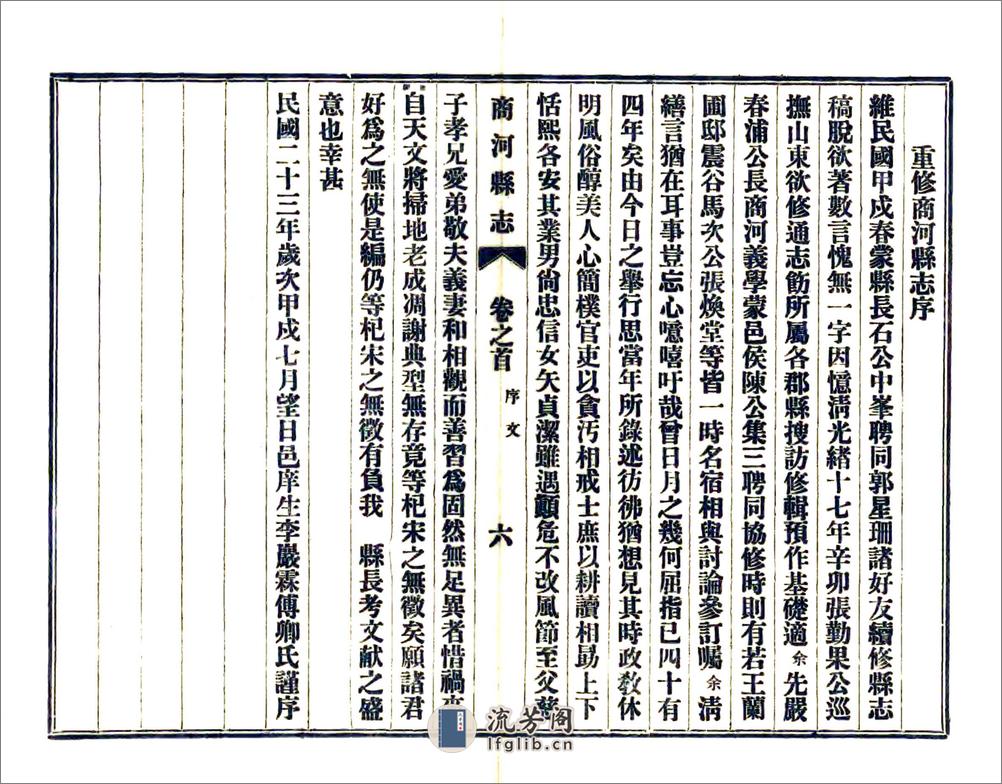 重修商河縣志序
維民國甲戌春蒙縣長石公中峯聘同郭星珊諸好友續修縣志
稿脫欲著數言愧無一字因憶淸光緒十七年辛卯張勤果公巡
撫山東欲修通志飭所屬各郡縣搜訪修輯預作基礎適余先嚴
春浦公長商河義學蒙邑侯陳公集三聘同協修時則有若王蘭
圃邸震谷馬次公張煥堂等皆一時名宿相與討論參訂囑余淸
繕言猶在耳事豈忘心噫嘻吁哉曾日月之幾何屈指已四十有
四年矣由今日之舉行思當年所錄述彷彿猶想見其時政敎休
明風俗醇美人心簡樸官吏以貪汚相戒士庶以耕讀相勗上下
恬熙各安其業男尙忠信女矢貞潔雖遇顚危不改風節至父慈
商河縣志
卷之首
序文
六
子孝兄愛弟敬夫義妻和相觀而善習爲固然無足異者惜禍
自天文將掃地老成凋謝典型無存竟等杞宋之無徵矣願諸君
好爲之無使是編仍等杞宋之無徵有負我 縣長考文献之盛
意也幸甚
民國二十三年歲次甲戌七月望日邑庠生李巖霖傅卿氏謹序
流芳阁
lfglib.cn